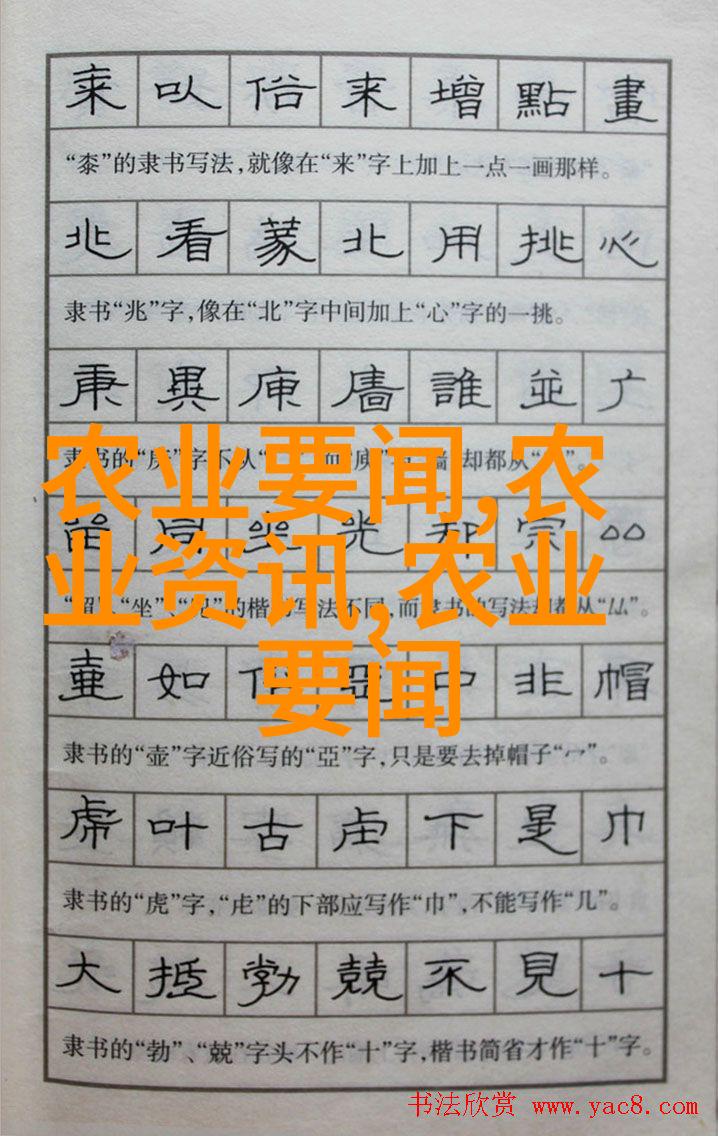 桼以俗来增點畫
“桼”的隶书写法，就像在“来”字上加上一点一画那样。
兆看蒙北用挑心
隶书“兆”字，像在“北”字中间加上“心”字的一挑。
庚異庾牆誰並广
隶书的“庚”字不从“ ”而“庾” 却都从“ ”。
同坐光却宗
“坐” 的楷书写法不同，而隶书的写法却都从“厸”。
壺如俗亞中非帽
隶书的“壶”字近俗写的“亞”字，只是要去掉帽子“宀”。
虎叶古虍下是巾
隶书的“虎”字，“虍”的下部应写作“巾”，不能写作“几”。
大抵勃兢不見十
隶书的“勃”、“兢”字头不作“十”字，楷书简省才作“十”字。
农业要闻,农
业资讯,农业
要闻
书法欣赏 www.yac8.com